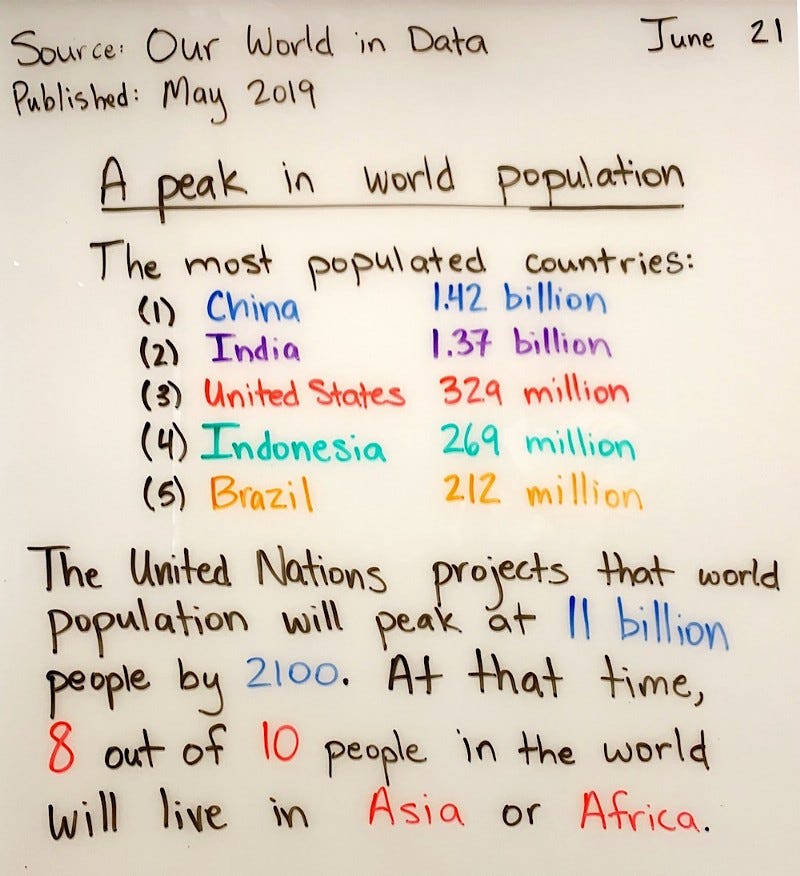 Source: Our World in Data
June 21
Published: May 2019
A peak in world population
The most populated countries:
(1) China 1.42 billion
(2) India 1.37 billion
(3) United States 329 million
(4) Indonesia 269 million
(5) Brazil 212 million
The United Nations projects that world
population will peak at 11 billion
people by 2100. At that time,
8 out of 10 people in the world
will live in Asia or Africa.